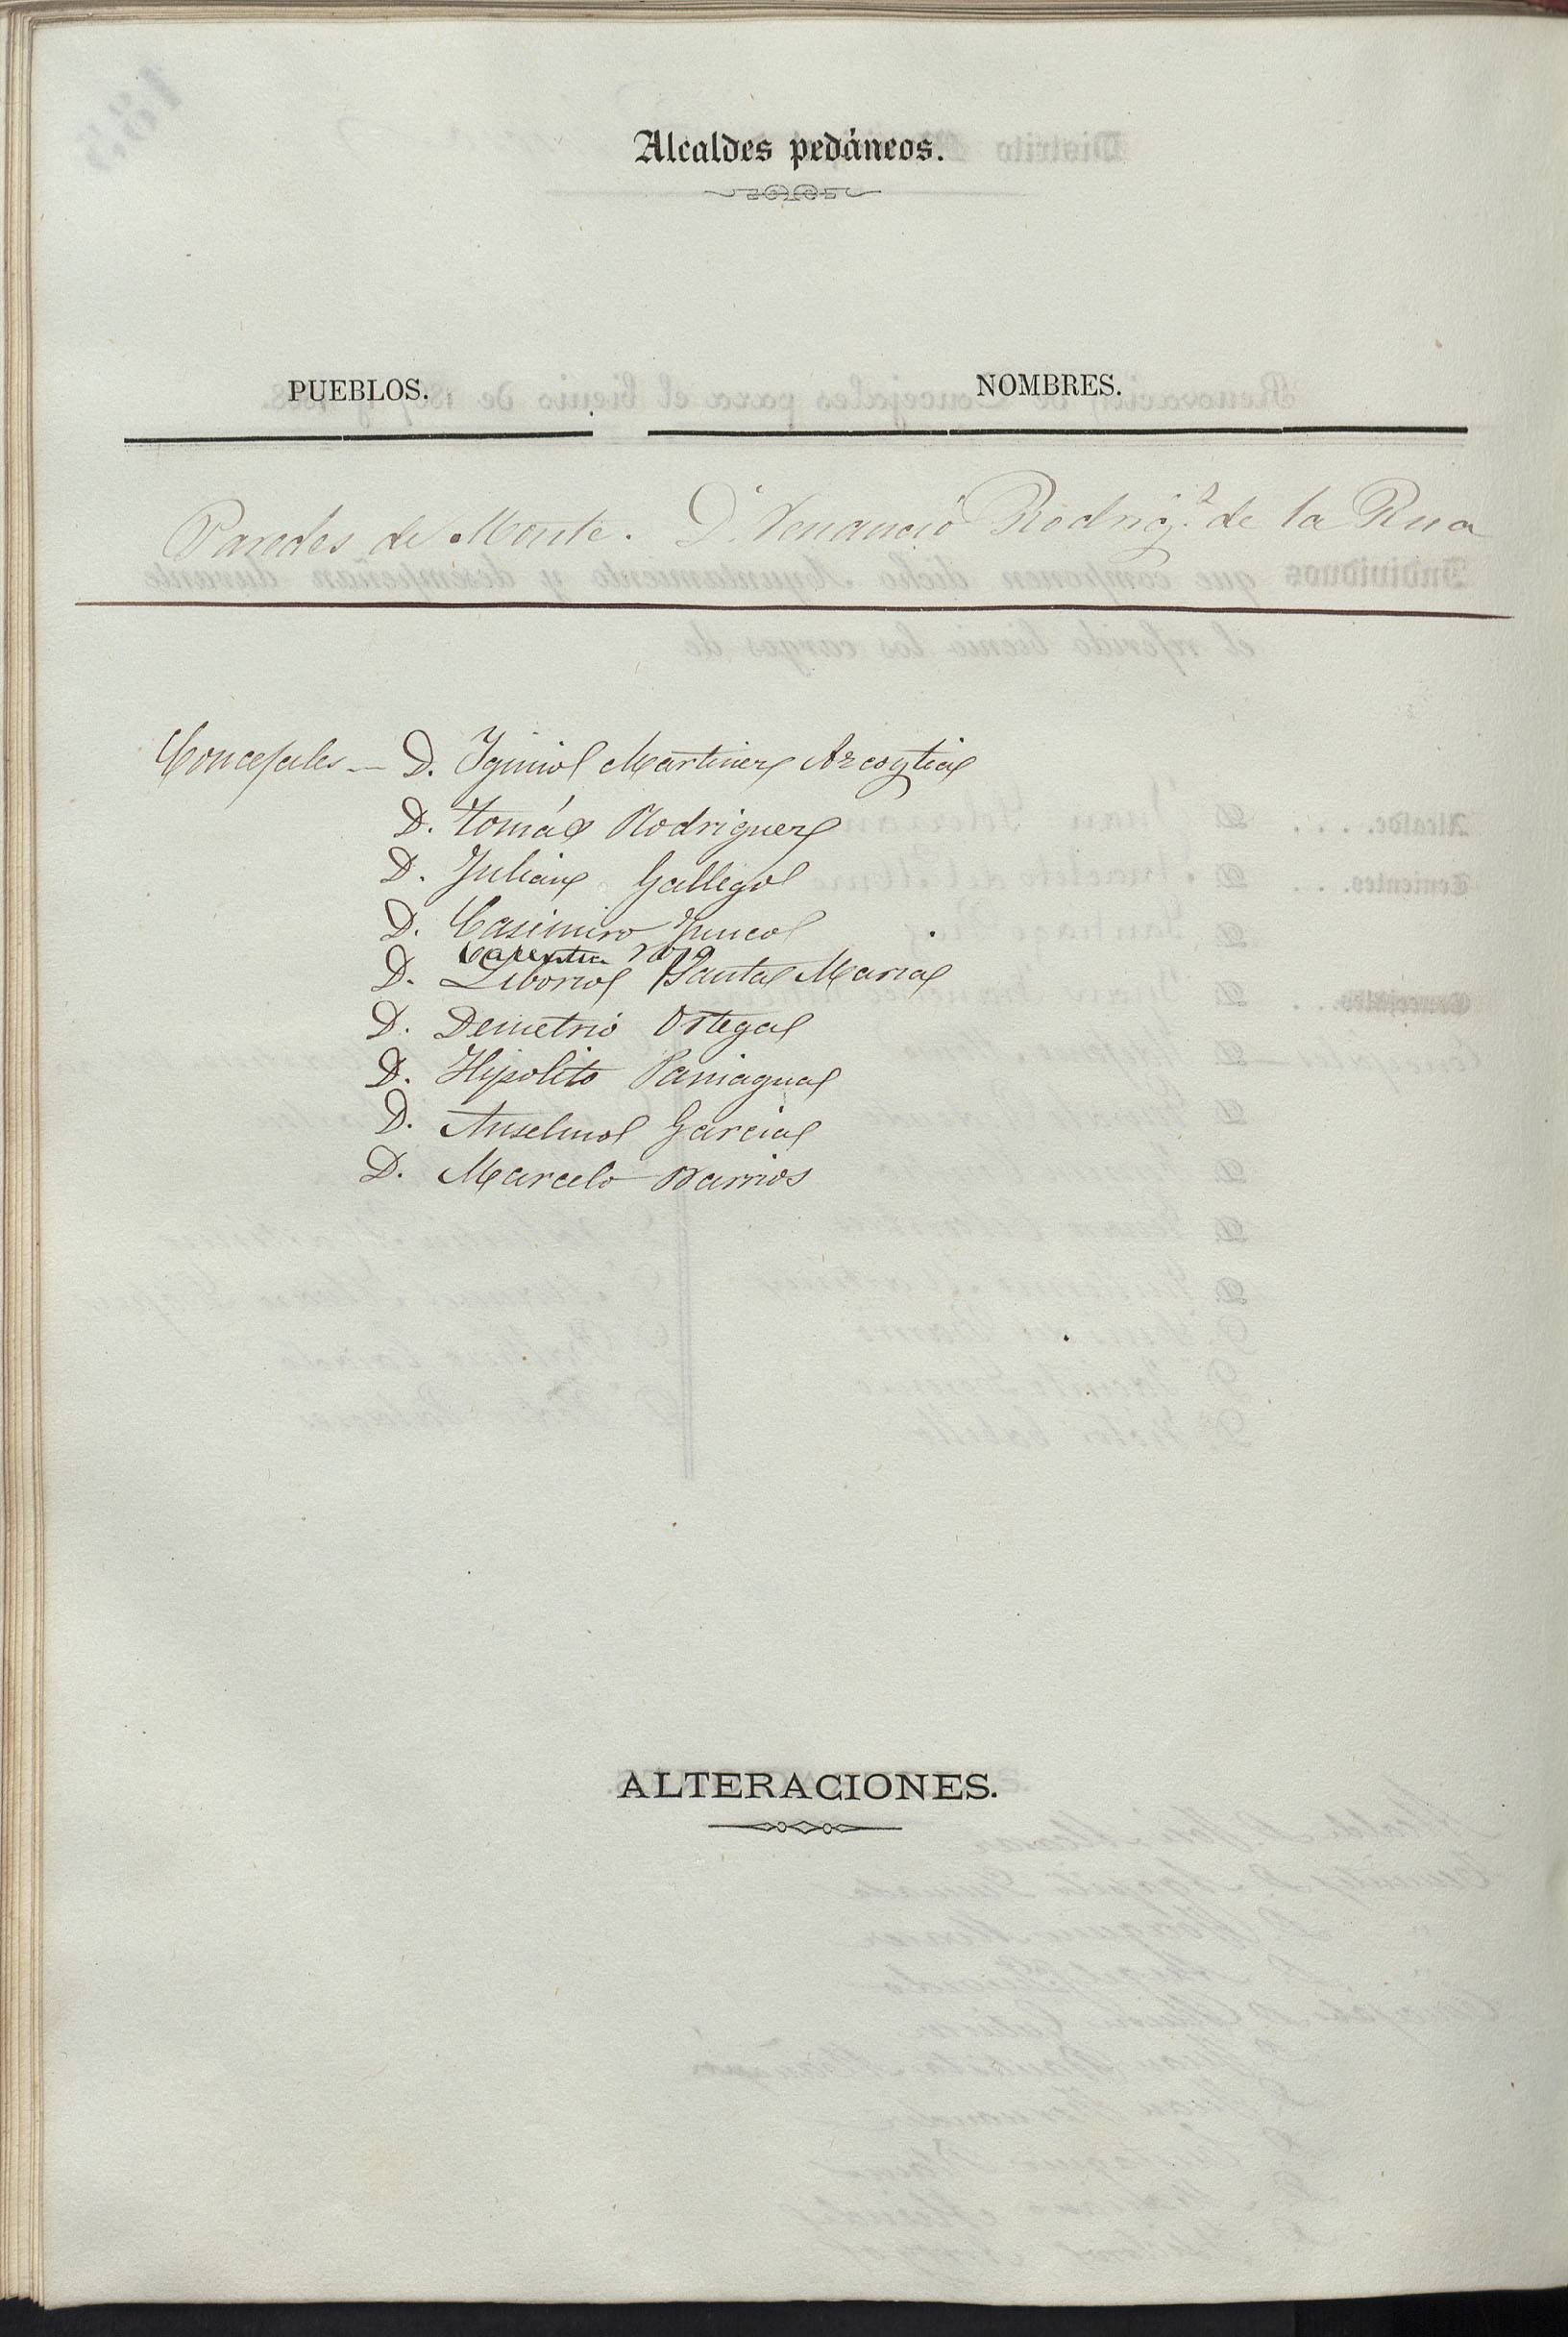 Alcaldes pedáneos.
PUEBLOS. NOMBRES.
Paredes de Monte. D. Venancio Rodrig.z de la Rua
Concejales — D. Iginio Martinez Arcoytia
D. Tomás Rodriguez
D. Julian Gallego
D. Casimiro Junco
D. Liborio Santa Maria
D. Demetrio Ortega
D. Hipolito Paniagua
D. Anselmo Garcia
D. Marcelo Barrios
ALTERACIONES.